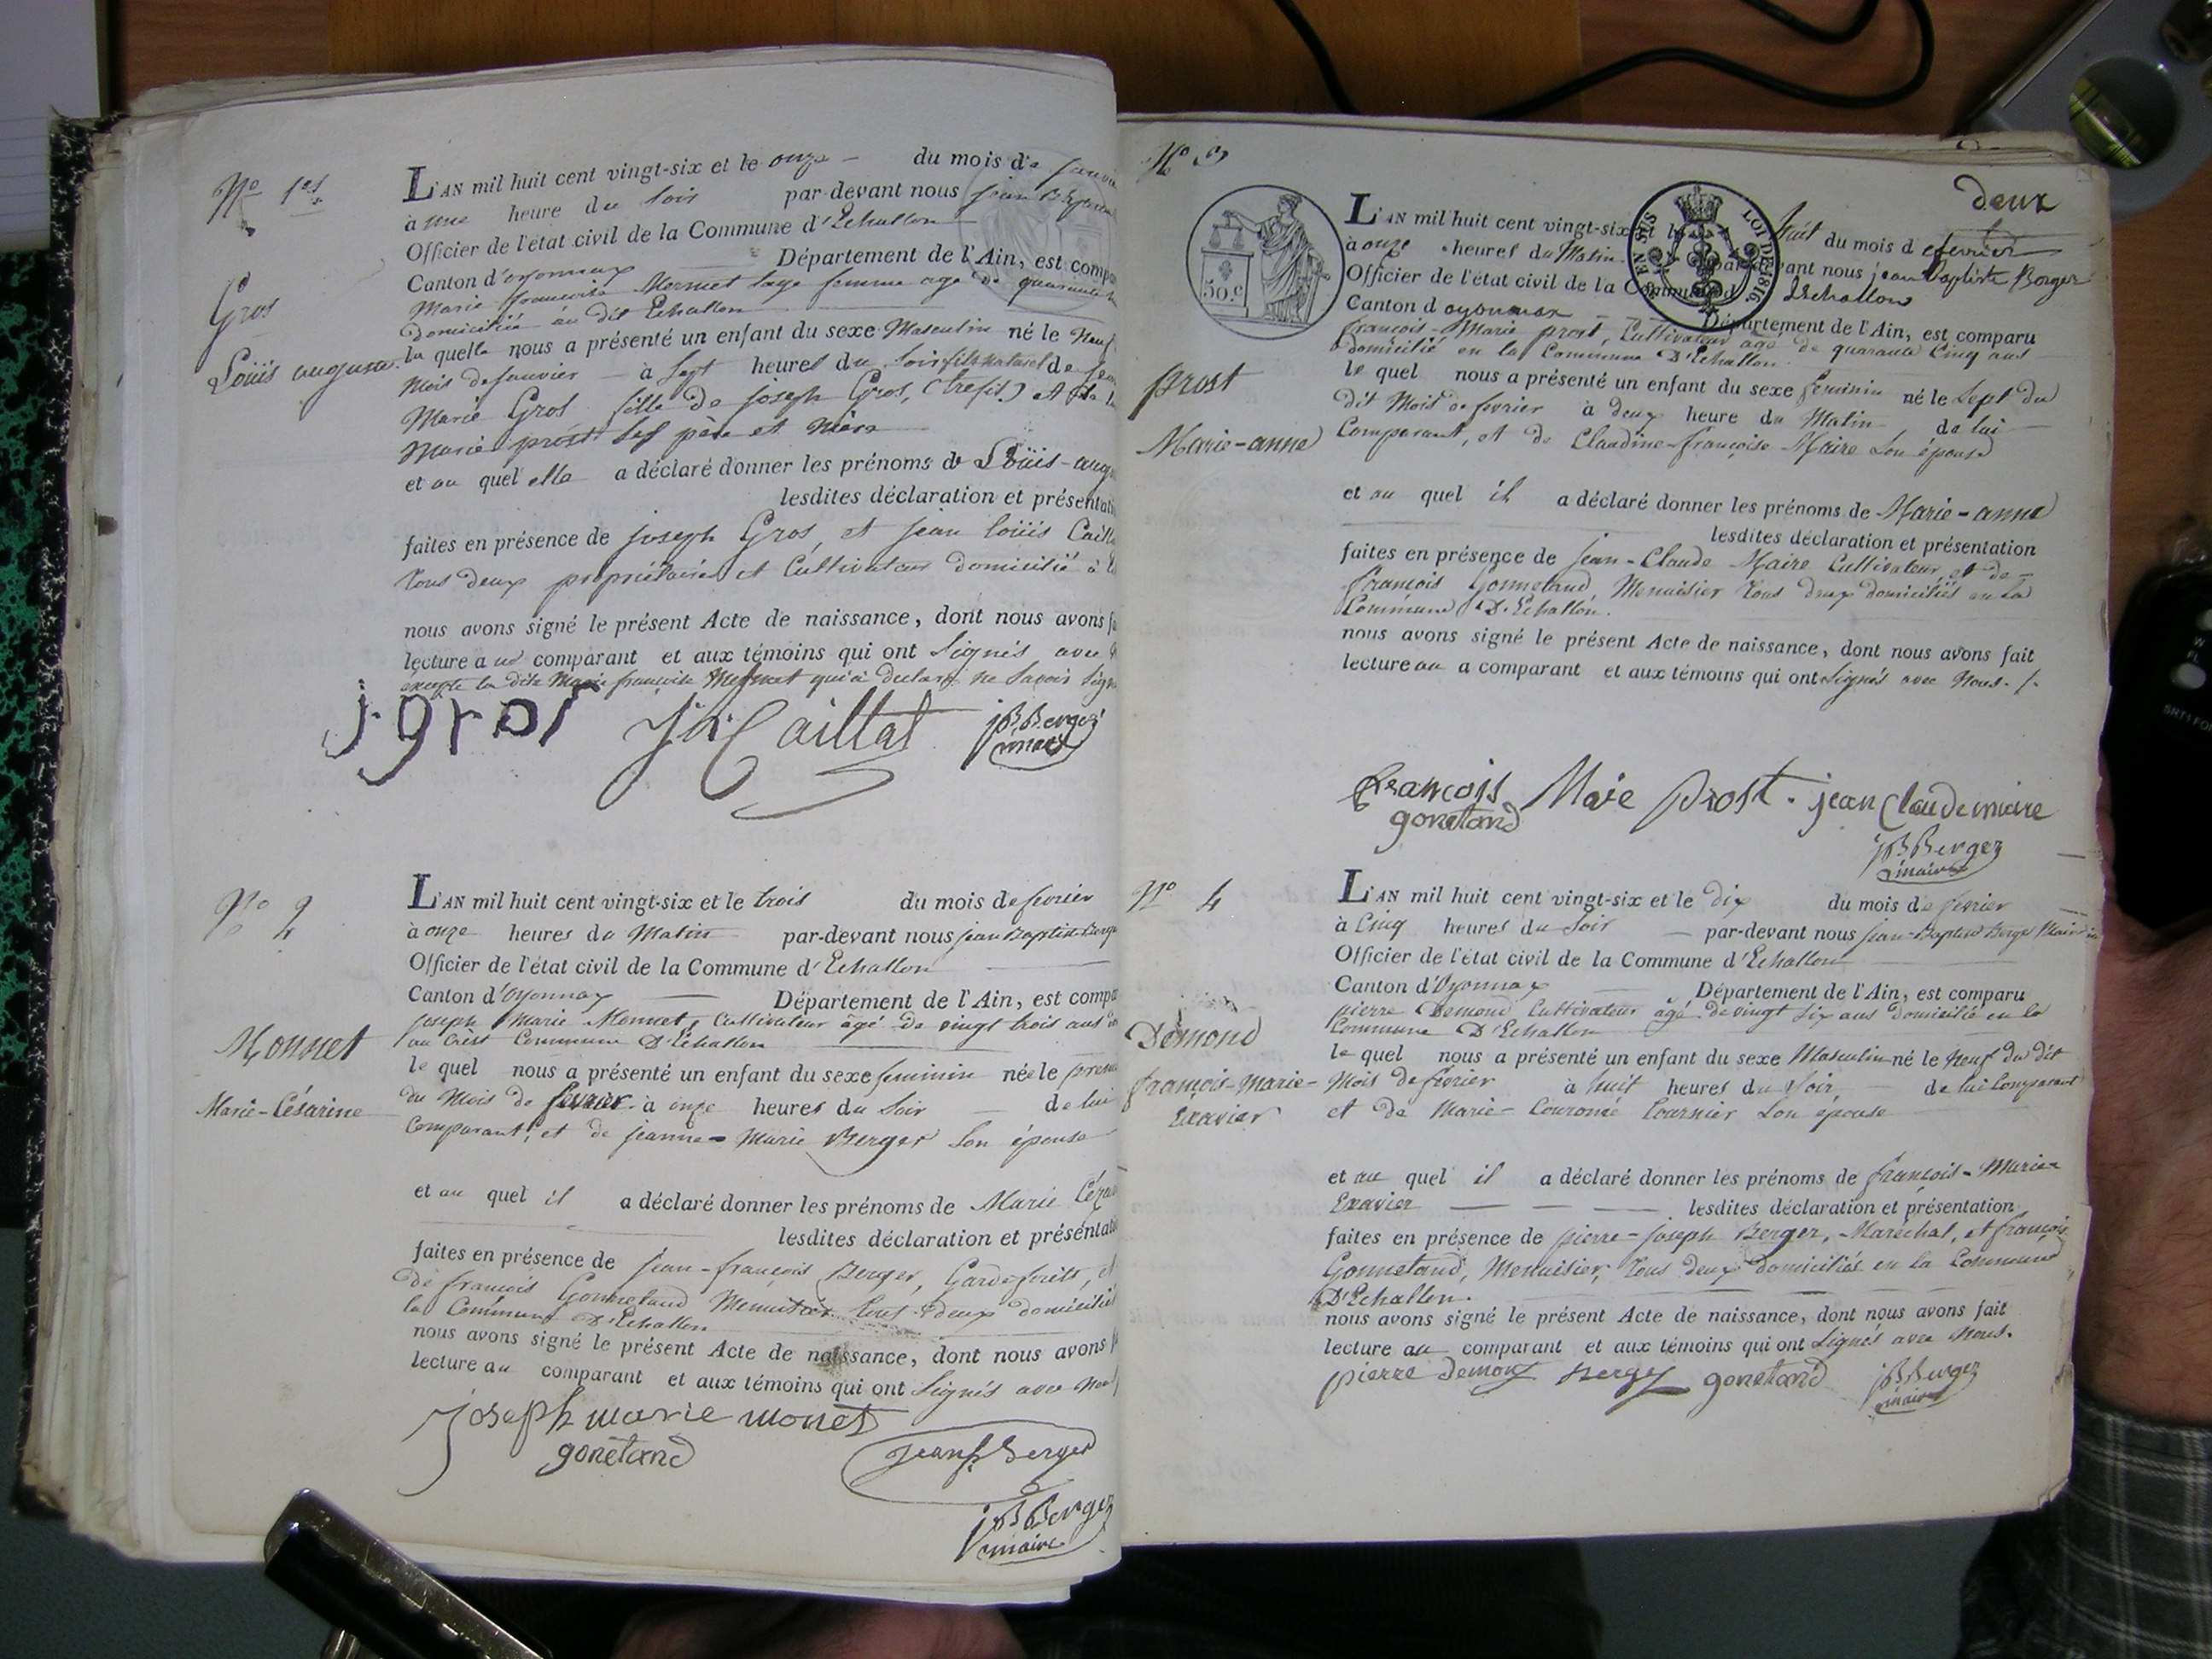 No 1er
Gros
Loüis auguste
L'AN mil huit cent vingt-six et le onze du mois de janvi
à une heure du soir par-devant nous jean B
Officier de l'état civil de la Commune d'Echallon
Canton d'oyonnax Département de l'Ain, est compa
Marie françoise Mermet sage femme agé de quarante
domiciliée au dit Echallon
la quelle nous a présenté un enfant du sexe Masculin né le Neuf
Mois de Janvier à Sept heures du Soir fils naturel de
Marie Gros fille de joseph Gros, et de
Marie prost ses père et Mère
et au quel elle a déclaré donner les prénoms de Loüis-aug
lesdites déclaration et présentati
faites en présence de joseph Gros, et jean loüis Cailla
tous deux propriétaires et Cultivateur domicilié à
nous avons signé le présent Acte de naissance, dont nous avons f
lecture a comparant et aux témoins qui ont Signés avec
excepté la dite Marie françoise Mermet qui a declaré ne Savoir Sign
j gros J L Caillat jB Berger
maire
No 2
Monnet
Marie-Césarine
L'AN mil huit cent vingt-six et le trois du mois de fevrier
à onze heures du Matin par-devant nous jean Baptiste Berge
Officier de l'état civil de la Commune d'Echallon
Canton d'Oyonnax Département de l'Ain, est compa
joseph Marie Monnet, Cultivateur âgé de vingt trois ans
au Crêt Commune D'Echallon
le quel nous a présenté un enfant du sexe feminin née le prem
du Mois de fevrier à onze heures du Soir de lui
Comparant, et de jeanne-Marie Berger Son épouse
et au quel il a déclaré donner les prénoms de Marie Céza
lesdites déclaration et présentati
faites en présence de jean-françois Berger, Garde forêts, et
de françois Gonnetand Menuisier tous deux domicilié
la Commune D'Echallon
nous avons signé le présent Acte de naissance, dont nous avons f
lecture au comparant et aux témoins qui ont Signés avec Nous
joseph marie monet
gonetand jean f. berger
jB Berger
maire
No 3
deux
50.c
EN SUS
LOI DE 1816.
prost
Marie-anne
L'AN mil huit cent vingt-six et le huit du mois de fevrier
à onze heures du Matin par-devant nous jean Baptiste Berger
Officier de l'état civil de la Commune d'Echallon
Canton d oyonnax Département de l'Ain, est comparu
françois-Marie prost, Cultivateur agé de quarante Cinq ans
domicilié en la Commune D'Echallon
le quel nous a présenté un enfant du sexe feminin né le Sept du
dit Mois de fevrier à deux heure du Matin de lui
Comparant, et de Claudine-françoise Maire Son épouse
et au quel il a déclaré donner les prénoms de Marie-anne
lesdites déclaration et présentation
faites en présence de jean-Claude Maire Cultivateur, et de
françois Gonnetand, Menuisier tous deux domiciliés en la
Commune D'Echallon.
nous avons signé le présent Acte de naissance, dont nous avons fait
lecture au a comparant et aux témoins qui ont Signés avec Nous.
françois Marie prost. jean Claude maire
gonetand
jB Berger
maire
No 4
Démond
françois-Marie-
Exavier
L'AN mil huit cent vingt-six et le dix du mois de fevrier
à Cinq heures du Soir par-devant nous jean-Baptiste Berger Maire
Officier de l'état civil de la Commune d'Echallon
Canton d'Oyonnax Département de l'Ain, est comparu
pierre Démond Cultivateur agé de vingt Six ans domicilié en la
Commune D'Echallon
le quel nous a présenté un enfant du sexe Masculin né le Neuf du dit
Mois de fevrier à huit heures du Soir, de lui Comparant
et de Marie-Couronné Tournier Son épouse
et au quel il a déclaré donner les prénoms de françois-Marie-
Exavier lesdites déclaration et présentation
faites en présence de pierre-joseph Berger, Maréchal, et françois
Gonnetand, Menuisier, tous deux domiciliés en la Commune
D'Echallon.
nous avons signé le présent Acte de naissance, dont nous avons fait
lecture au comparant et aux témoins qui ont Signés avec Nous.
pierre demond Berger gonetand jB Berger
maire